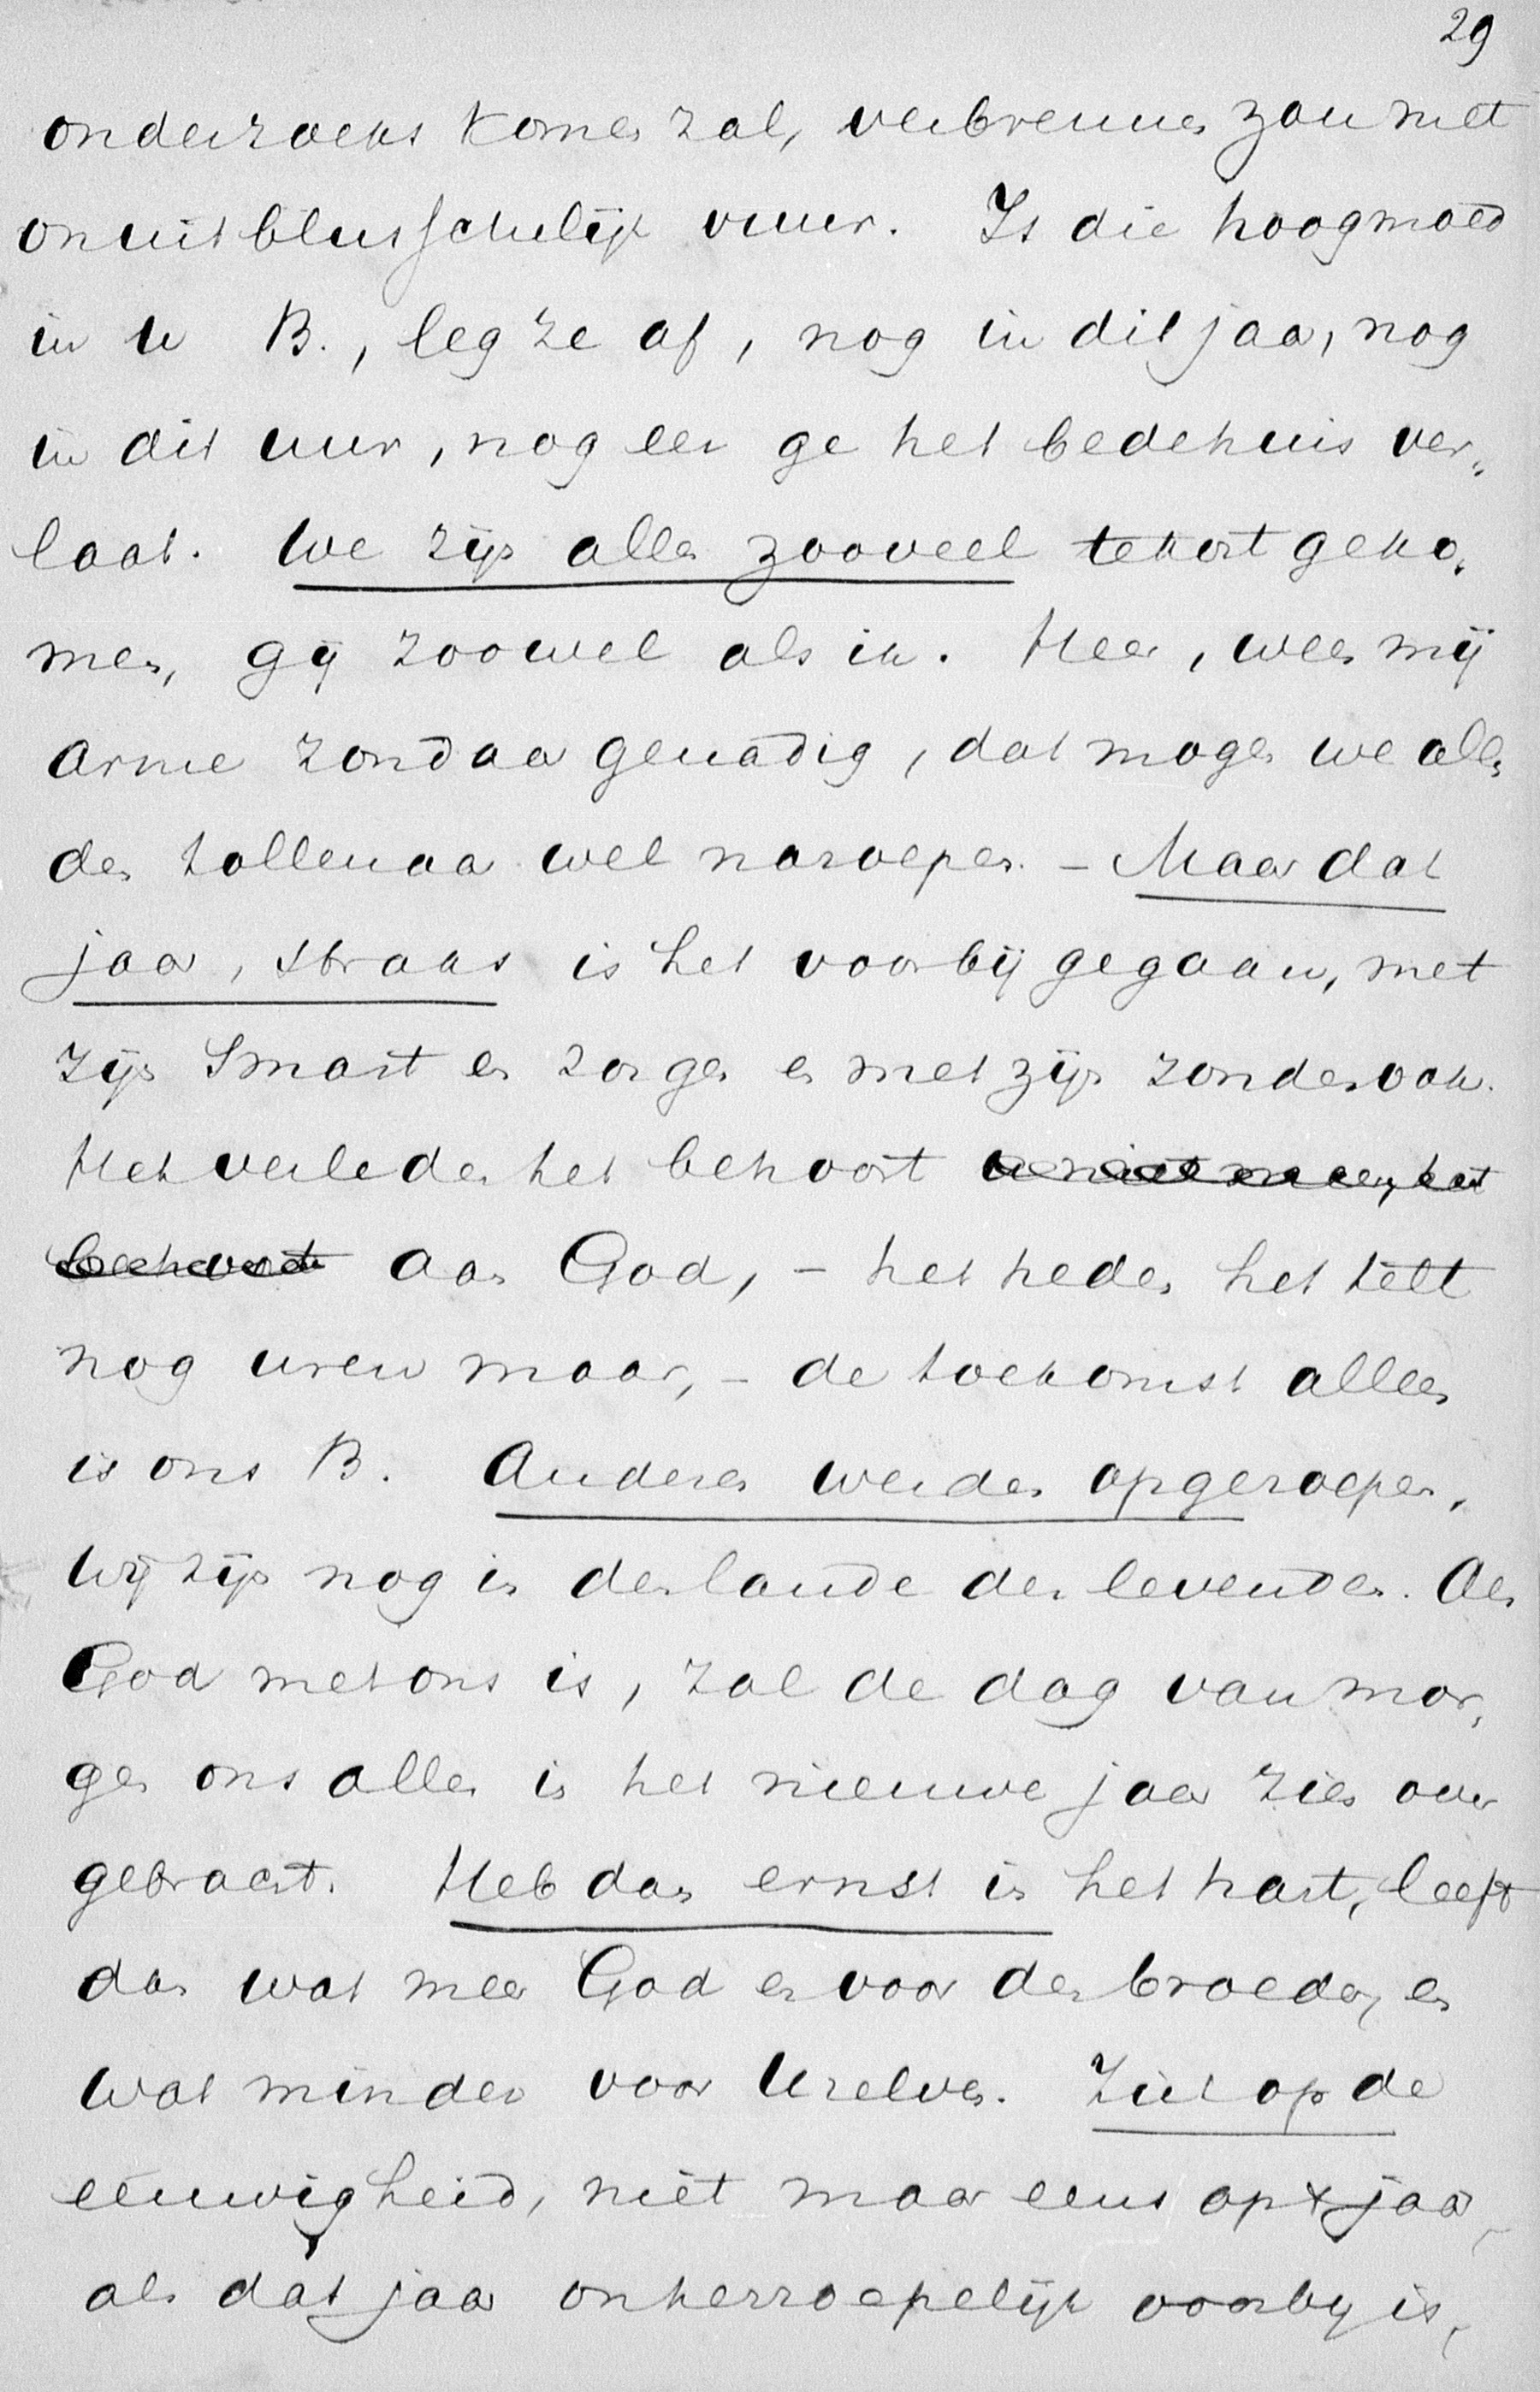 29
onderzoeks komen zal, verbrennen zou met
onuitblusschelijk vuur. Is die hoogmoed
in u B., leg ze af, nog in dit jaar, nog
in dit uur, nog eer ge het bedehuis ver„
laat. We zijn allen zooveel tekort geko„
men, gij zoowel als ik. Heer, wees mij
arme zondaar genadig, dat mogen we allen
den tollenaar wel naroepen. – Maar dat
jaar, straks is het voorbij gegaan, met
zijn smart en zorgen en met zijn zonden ook.
Het verleden het behoort u niet meer, het
behoort aan God, – het heden het telt
nog uren maar, – de toekomst alleen
is ons B. Anderen werden opgeroepen,
wij zijn nog in den lande der levenden. Als
God met ons is, zal de dag van mor„
gen ons allen in het nieuwe jaar zien over
gebracht. Heb dan ernst in het hart, leeft
dan wat meer God en voor den broeder, en
wat minder voor Uzelven. Ziet op de
eeuwigheid, niet maar eens op 't jaar,
als dat jaar onherroepelijk voorby is,